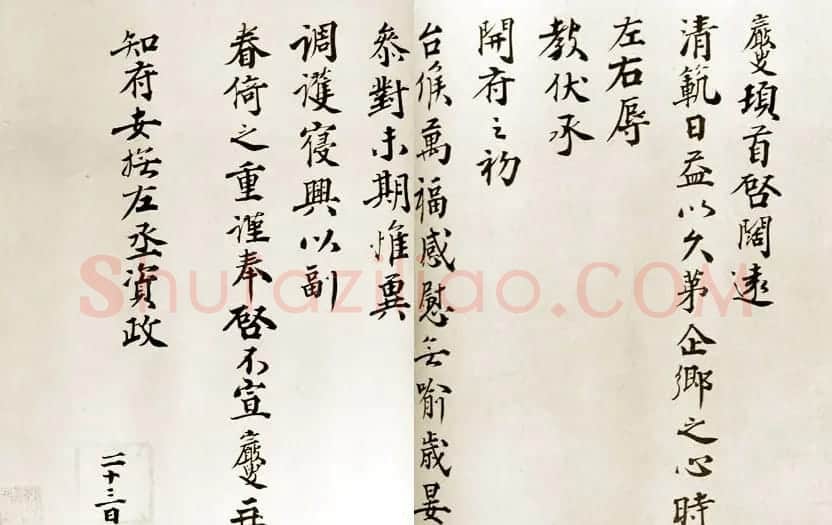 巖叟頓首啓闊遠
清範日益以久第企鄉之心時
左右辱
教伏承
開府之初
台候萬福感慰無喻歲晏
叅對未期惟冀
調護寢興以副
眷倚之重謹奉啓不宣巖叟再
知府安撫左丞資政
二十三日
Shufaziliao.COM